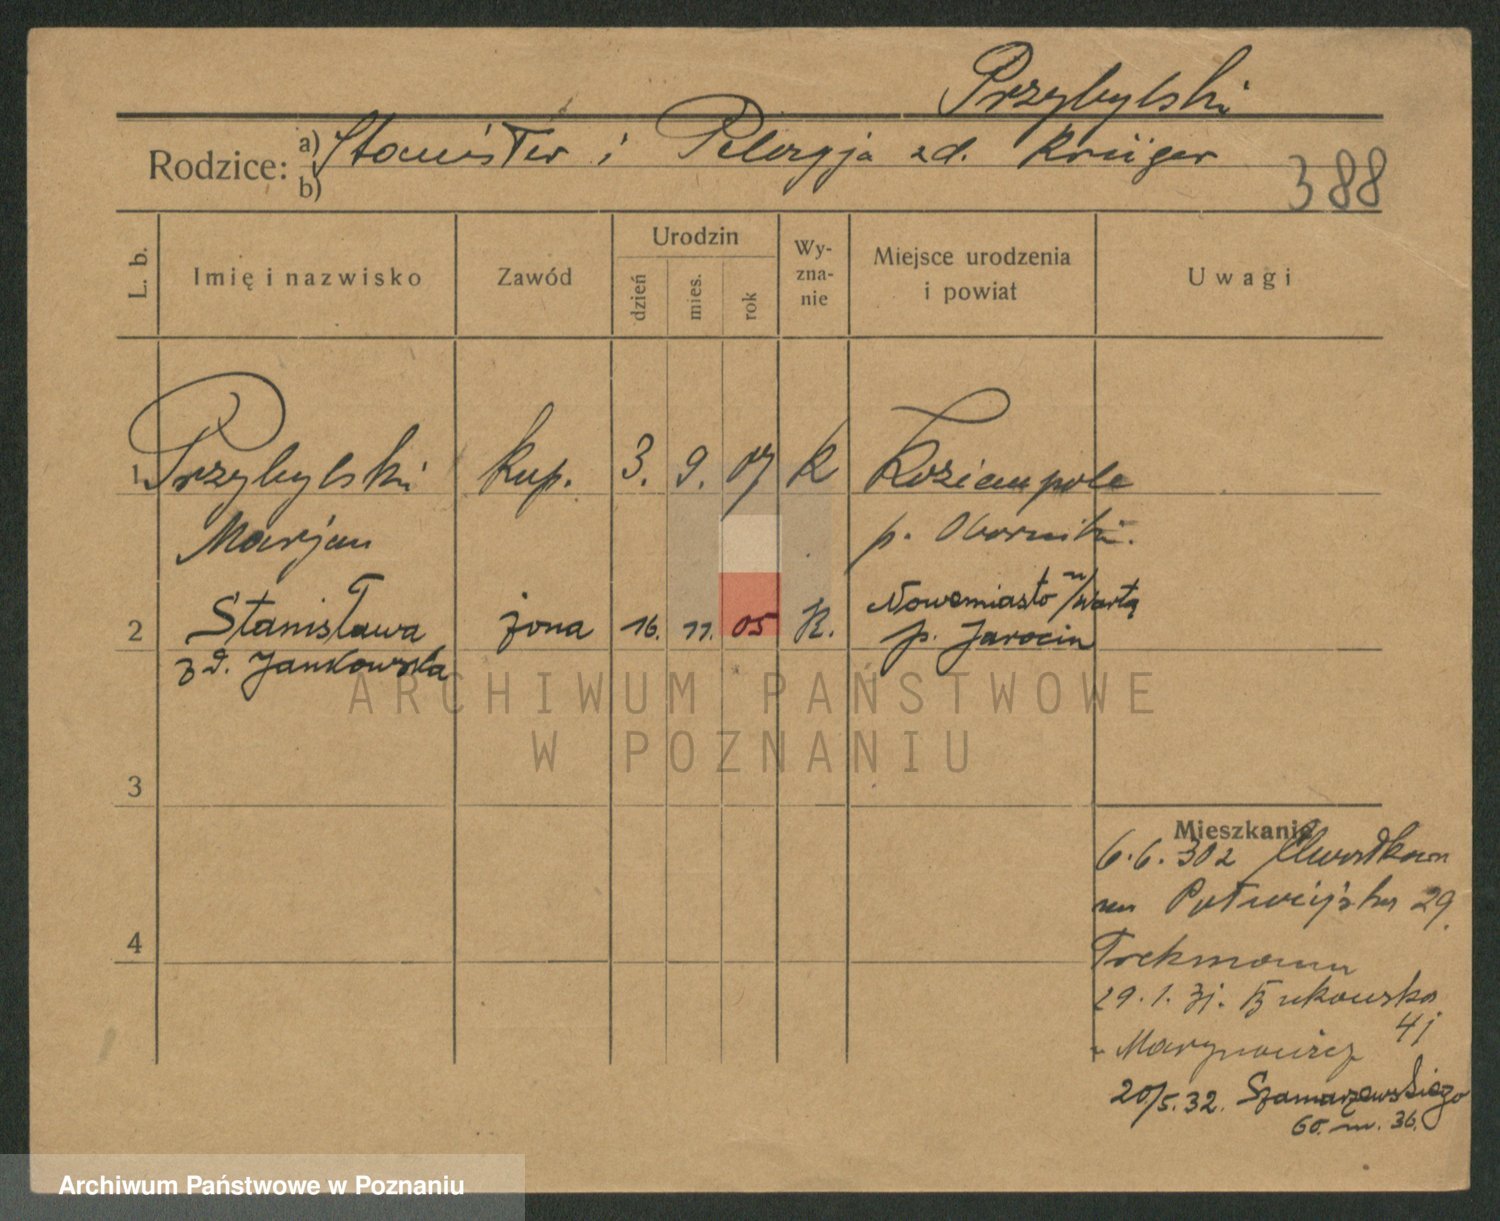 Przybylski
Rodzice: a) Stanisław i Pelagja zd. Krüger
b)
388
L. b.
Imię i nazwisko
Zawód
Urodzin
dzień
mies.
rok
Wy-
zna-
nie
Miejsce urodzenia
i powiat
Uwagi
1 Przybylski kup. 3. 9. 07 K
Marjan p. Oborniki.
2 Stanisława żona 16. 11. 05 K. Nowemiasto n/Wartą
zd. Jankowska p. Jarocin
3
4
Mieszkanie
6.6.30
29.
29.1.31. Bukowska
41
20/5.32. Szamarzewskiego
60. m. 36.
ARCHIWUM PAŃSTWOWE
W POZNANIU
Archiwum Państwowe w Poznaniu